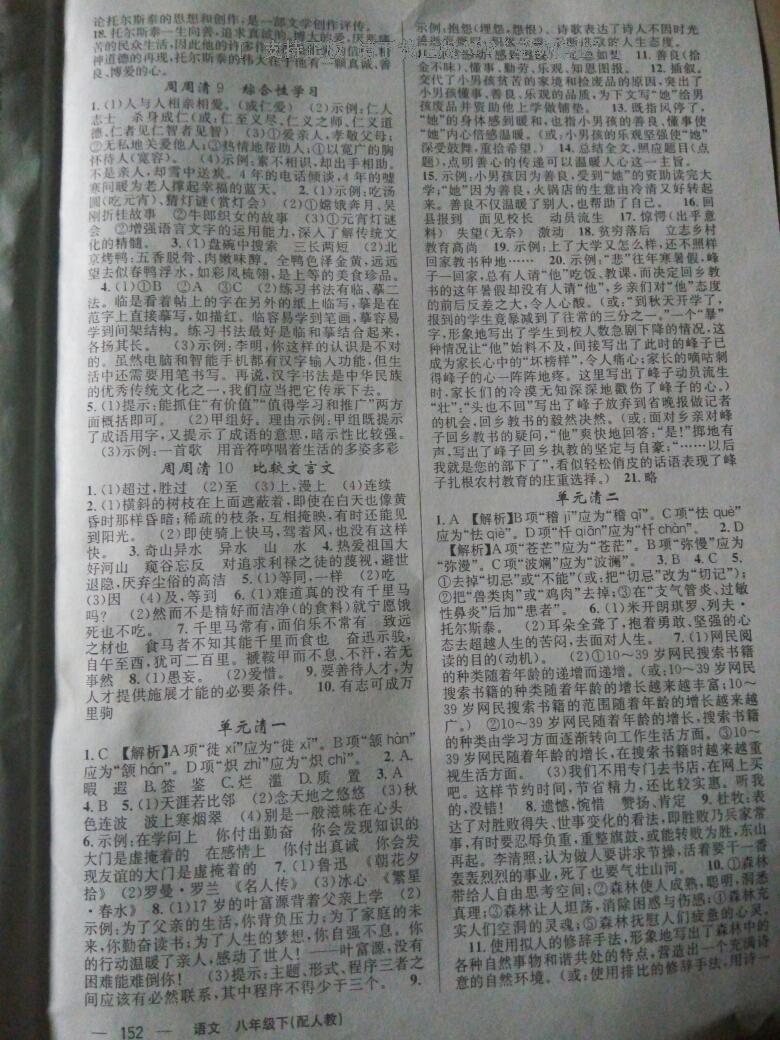 论托尔斯泰的思想和创作，是一部文学创作评传。
18.托尔斯泰一生向善，追求真诚、博大的爱，厌恶
苦的民众生活，因此他的许多作
道德的再现，托尔斯泰的伟大在于他有一颗真诚、善
良、博爱的心。
周周清9 综合性学习
1.(1)人与人相亲相爱。(或仁爱) (2)示例：仁人
志士 杀身成仁(或：仁至义尽、仁义之师、仁义道
德、仁者见仁智者见智) (3)①爱亲人，孝敬父母；
②无私地关爱他人；③热情地帮助人；④以宽广的胸
怀待人(宽容)。 (4)示例：素不相识，却出手相助。
不是亲人，却雪中送炭。4年的电话倾谈，4年的嘘
寒问暖为老人撑起幸福的蓝天。 2.(1)示例：吃汤
圆(吃元宵)、猜灯谜(赏灯会) (2)①嫦娥奔月、吴
刚折桂故事 ②牛郎织女的故事 (3)①元宵灯谜
会 ②增强语言文字的运用能力，深入了解传统文
化的精髓。 3.(1)盘碗中搜索 三长两短 (2)北
京烤鸭：五香脱骨，肉嫩味醇。全鸭色泽金黄，远远
望去似春鸭浮水，如彩凤梳翎，是上等的美食珍品。
4.(1)①B ②A ③C (2)练习书法有临、摹二
法。临是看着帖上的字在另外的纸上临写，摹是在
范字上直接摹写，如描红。临容易学到笔画，摹容易
学到间架结构。练习书法最好是临和摹结合起来，
各扬其长。 (3)示例：李明，你这样的认识是不对
的。虽然电脑和智能手机都有汉字输入功能，但生
活中还需要用笔书写。再说，汉字书法是中华民族
的优秀传统文化之一，我们应当把它传承下去。
5.(1)提示：能抓住“有价值”“值得学习和推广”两方
面概括即可。 (2)甲组好。理由示例：甲组既提示
了成语用字，又提示了成语的意思，暗示性比较强。
(3)示例：一首歌 用音符哼唱着生活的多姿多彩
周周清10 比较文言文
1.(1)超过，胜过 (2)至 (3)上，漫上 (4)连续
2.(1)横斜的树枝在上面遮蔽着，即使在白天也像黄
昏时那样昏暗；稀疏的枝条，互相掩映，有时还能见
到阳光。 (2)即使骑上快马，驾着风，也没有这样
快。 3.奇山异水 异水 山 水 4.热爱祖国大
好河山 窥谷忘反 对追求利禄之徒的蔑视，避世
退隐，厌弃尘俗的高洁 5.(1)等同，一样 (2)吃
(3)因 (4)及，等到 6.(1)难道真的没有千里马
吗？ (2)然而不是精好而洁净(的食料)就宁愿饿
死也不吃。 7.千里马常有，而伯乐不常有 致远
之材也 食马者不知其能千里而食也 奋迅示骏，
自午至酉，犹可二百里。褫鞍甲而不息、不汗，若无
事然 8.(1)愚妄。 (2)爱惜。 9.要善待人才，为
人才提供施展才能的必要条件。 10.有志可成万
里驹
单元清一
1.C 【解析】A项“徙xǐ”应为“徙xǐ”。B项“颔hàn”
应为“颔hán”。D项“炽zhì”应为“炽chì”。 2.A.
暇 遐 B.签 鉴 C.烂 滥 D.质 置 3.A
4.B 5.(1)天涯若比邻 (2)念天地之悠悠 (3)秋
色连波 波上寒烟翠 (4)别是一般滋味在心头
6.示例：在学问上 你付出勤奋 你会发现知识的
大门是虚掩着的 在感情上 你付出真诚 你会发
现友谊的大门是虚掩着的 7.(1)鲁迅 《朝花夕
拾》 (2)罗曼·罗兰 《名人传》 (3)冰心 《繁星
·春水》 8.(1)17岁的叶富源背着父亲上学 (2)
示例：为了父亲的生活，你背负压力；为了家庭的未
来，你勤奋读书；为了人生的梦想，你自强不息。你
的行动温暖了亲人，感动了世人！——叶富源，没有
困难能难倒你！ (3)提示：主题、形式、程序三者之
间应该有必然联系，其中程序不得少于三个。 9.
示例：抱怨(埋怨、怨恨)。诗歌表达了诗人不因时光
流逝
的人生态度。
11.善良(拾
金不昧)，懂事，勤劳，乐观，知恩图报。 12.插叙。
交代了小男孩贫苦的家境和捡废品的原因，突出了
小男孩懂事、善良、乐观的品质，为下文写“她”给男
孩废品并资助他上学做铺垫。 13.既指风停了，
“她”的身体感到暖和，也指小男孩的善良、懂事使
“她”内心倍感温暖。(或：小男孩的乐观坚强使“她”
深受鼓舞，重拾希望。) 14.总结全文，照应题目(点
题)，点明善心的传递可以温暖人心这一主旨。
15.示例：小男孩因为善良，受到“她”的资助读完大
学；“她”因为善良，火锅店的生意由冷清又好转起
来。善良不仅温暖了别人，也帮助了自己。 16.回
县报到 面见校长 动员流生 17.惊愕(出乎意
料) 失望(无奈) 激动 18.贫穷落后 立志乡村
教育高尚 19.示例：上了大学又怎么样，还不照样
回家教书种地…… 20.示例：“悲”往年寒暑假，峰
子一回家，总有人请“他”吃饭、教课，而决定回乡教
书的这年暑假却没有人请“他”，乡亲们对“他”态度
的前后反差之大，令人心酸。(或：“到秋天开学了，
报到的学生竟暴减到了往常的三分之一。”一个“暴”
字，形象地写出了学生到校人数急剧下降的情况，这
种情况让“他”始料不及，间接写出了此时的峰子已
成为家长心中的“坏榜样”，令人痛心；家长的嘀咕刺
得峰子的心一阵阵地疼。这里写出了峰子动员流生
时，家长们的冷漠无知深深地戳伤了峰子的心。)
“壮”：“头也不回”写出了峰子放弃到省晚报做记者
的机会，回乡教书的毅然决然。(或：面对乡亲对峰
子回乡教书的疑问，“他”爽快地回答：“是！”掷地有
声，写出了峰子回乡执教的坚定与自豪；“……以后
我就是您的部下了”，看似轻松俏皮的话语表现了峰
子扎根农村教育的庄重选择。) 21.略
单元清二
1.A 【解析】B项“稽jī”应为“稽qǐ”。C项“怯què”
应为“怯qiè”。D项“忏qiān”应为“忏chàn”。 2.D
【解析】A项“苍芒”应为“苍茫”。B项“弥慢”应为
“弥漫”。C项“波斓”应为“波澜”。 3.B 4.C 5.
①去掉“切忌”或“不能”(或：把“切忌”改为“切记”)；
②把“兽类肉”或“鸡肉”去掉；③在“支气管炎、过敏
性鼻炎”后加“患者”。 6.(1)米开朗琪罗、列夫·
托尔斯泰。 (2)耳朵全聋了，抱着勇敢、坚强的心
态去超越人生的苦闷，去面对人生。 7.(1)网民阅
读的目的(动机)。 (2)①10～39岁网民搜索书籍
的种类随着年龄的递增而递增。(或：10～39岁网民
搜索书籍的种类随着年龄的增长越来越丰富；10～
39岁网民搜索书籍的范围随着年龄的增长越来越
广。) ②10～39岁网民随着年龄的增长，搜索书籍
的种类由学习方面逐渐转向工作生活方面。 (或：
10～39岁网民随着年龄的增长，在搜索书籍时越来越重
视生活方面。) (3)我们不用专门去书店，在网上买
吧。这样节约时间，节省精力，还比较实惠。听我
的，没错！ 8.遗憾、惋惜 赞扬、肯定 9.杜牧：表
达了对胜败得失、世事变化的看法，即胜败乃兵家常
事，有时要忍辱负重，重整旗鼓，或能转败为胜，东山
再起。李清照：认为做人要讲求节操，活着要干一番
轰轰烈烈的事业，死了也要气壮山河。 10.①森林
带给人自由思考空间；②森林使人成熟，聪明，洞悉
真理；③森林让人坦荡，消除困惑与伤感；④森林充
实人们空洞的灵魂；⑤森林抚慰人们疲惫的心灵。
11.使用拟人的修辞手法，形象地写出了森林中的
各种自然事物和谐共处的特点，营造出一个充满诗
意的自然环境。(或：使用排比的修辞手法，用诗一
— 152 — 语文 八年级下(配人教)